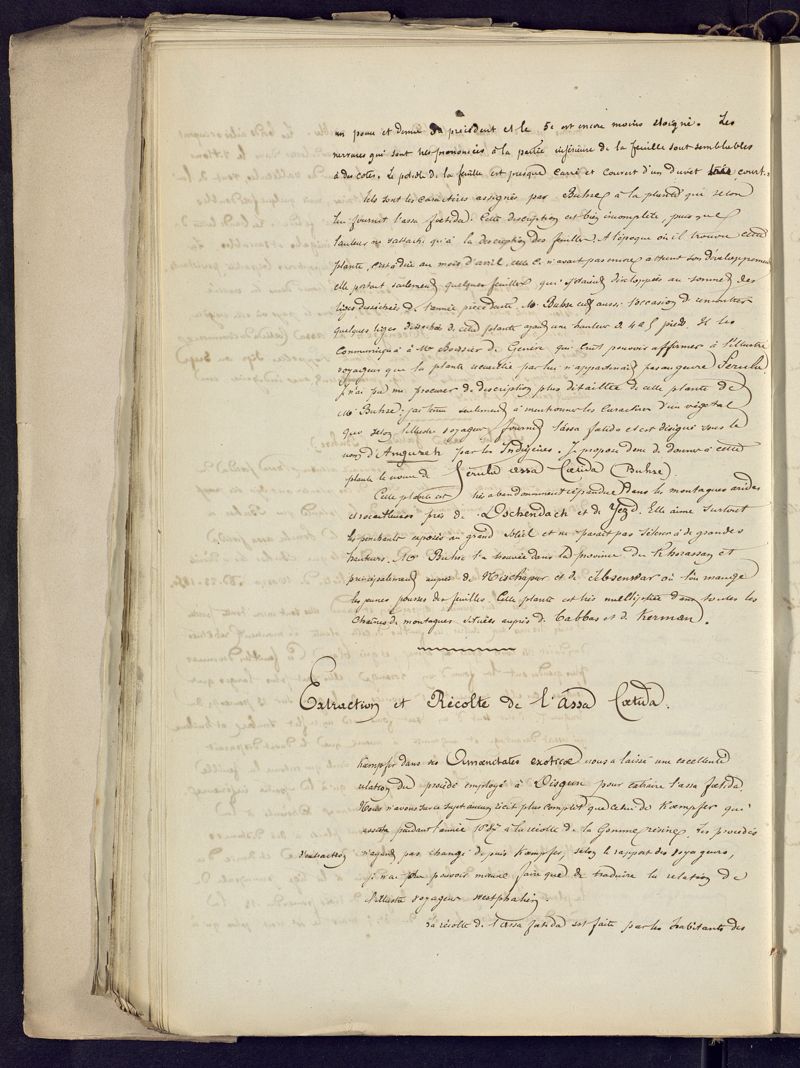 un pouce et demi du précédent et le 5e est encore moins éloigné. Les
nervures qui sont très prononcées à la partie inférieure de la feuille sont semblables
à des côtes. Le pétiole de la feuille est presque carré et couvert d'un duvet très court.
Tels sont les caractères assignés par Buhse à la plante qui selon
lui fournit l'assa fœtida. Cette description est bien incomplète, puisque
l'auteur ne s'attache qu'à la description des feuilles. A l'époque où il trouva cette
plante, c'est à dire au mois d'avril, celle ci n'avait pas encore atteint son développement
elle portait seulement quelques feuilles qui s'étaient développées au sommet des
tiges desséchées de l'année précédente. Mr Buhse eut aussi l'occasion de rencontrer
quelques tiges desséchées de cette plante ayant une hauteur de 4 à 5 pieds. Il les
communiqua à Mr Boissier de Genève qui crut pouvoir affirmer à l'illustre
voyageur que la plante recueillie par lui n'appartenait pas au genre Ferula.
J'n'ai pu me procurer de description plus détaillée de cette plante de
Mr Buhse: j'ai tenu seulement à mentionner les caractères d'un végétal
que selon l'illustre voyageur fournit l'assa fœtida et est désigné sous le
nom d'Anguzeh par les Indigènes. Je propose donc de donner à cette
plante le nom de Ferula assa fœtida (Buhse)
Cette plante est très abondamment répandue dans les montagnes arides
et rocailleuses près de Dschendach et de Yezd. Elle aime surtout
les penchants exposés au grand soleil et ne paraît pas s'élever à de grandes
hauteurs. Mr Buhse l'a trouvée dans la province du Khorassan et
principalement auprès de Nischapur et de Sebsenwar où l'on mange
les jeunes pousses des feuilles. Cette plante est très multipliée dans toutes les
chaînes de montagnes situées auprès de Tabbas et de Kerman.
Extraction et Récolte de l'Assa fœtida.
Kœmpfer dans ses Amœnitates exoticæ nous a laissé une excellente
relation du procédé employé à Disgun pour extraire l'assa fœtida.
Nous n'avons sur ce sujet aucun récit plus complet que celui de Kœmpfer qui
assista pendant l'année 1687 à la récolte de la Gomme résine. Les procédés
d'extraction n'ayant pas changé depuis Kœmpfer, selon le rapport des voyageurs,
je n'ai pu pouvoir mieux faire que de traduire la relation de
l'illustre voyageur westphalien.
La récolte de l'assa fœtida est faite par les habitants des